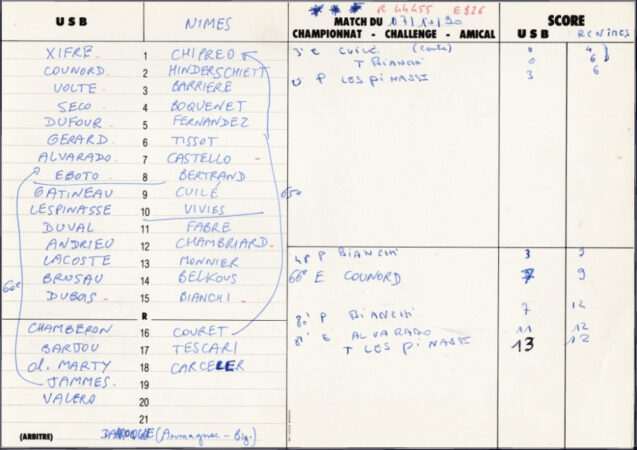 * * * R 44455 E826
USB NIMES MATCH DU 07/10/90 SCORE
CHAMPIONNAT - CHALLENGE - AMICAL USB RENNES
XIFRÉ 1 CHIPREO
COUNORD 2 HINDERSCHIETT
VOLTE 3 BARRIERE
SECO 4 BOQUENET
DUFOUR 5 FERNANDEZ
GERARD 6 TISSOT
ALVARADO 7 CASTELLO
EBOTO 8 BERTRAND
GATINEAU 9 CUILÉ
LESPINASSE 10 VIVIES
DUVAL 11 FABRE
ANDRIEU 12 CHAMBRIARD
LACOSTE 13 MONNIER
BRUSAU 14 BELKOUS
DUBOIS 15 BIANCHI
R
CHAMBERON 16 COURET
BARJOU 17 TESCARI
d. MARTY 18 CARCELER
JAMMES 19
VALERO 20
21
(ARBITRE) (Armagnac - Big.)
60e
65e
3' E CUILÉ 0 4
T BIANCHI 0 6
P LESPINASSE 3 6
P BIANCHI 3 9
66e E COUNORD 7 9
80' P BIANCHI 7 12
81' E ALVARADO 11 12
T LESPINASSE 13 12